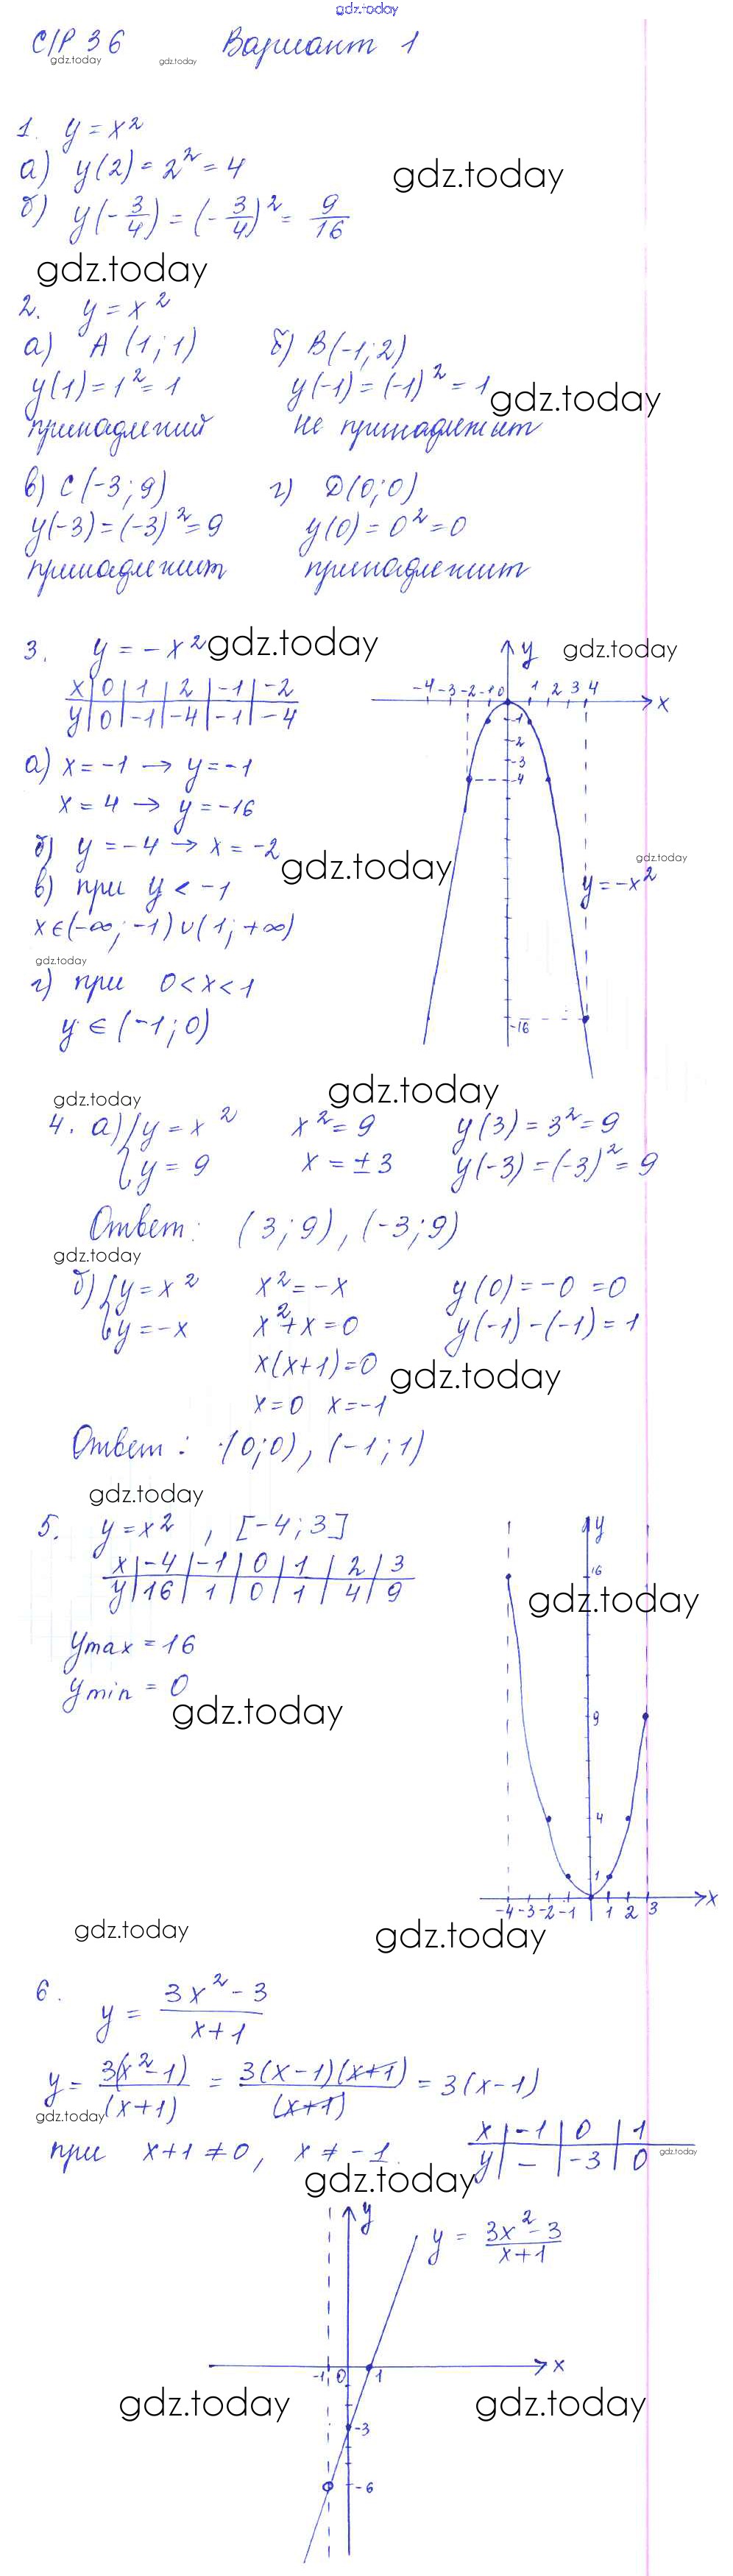 gdz.today
С/Р 36 Вариант 1
gdz.today gdz.today
1. y = x²
а) y(2) = 2² = 4
gdz.today
б) y(-3/4) = (-3/4)² = 9/16
gdz.today
2. y = x²
а) A (1; 1) б) B(-1; 2)
y(1) = 1² = 1 y(-1) = (-1)² = 1
gdz.today
принадлежит не принадлежит
в) C (-3; 9) г) D(0; 0)
y(-3) = (-3)² = 9 y(0) = 0² = 0
принадлежит принадлежит
3. y = -x²
gdz.today gdz.today
x | 0 | 1 | 2 | -1 | -2
y | 0 | -1 | -4 | -1 | -4
y
-4 -3 -2 -1 0 1 2 3 4 x
-1
-2
-3
-4
-16
y = -x²
gdz.today
а) x = -1 → y = -1
x = 4 → y = -16
б) y = -4 → x = -2
gdz.today
в) при y < -1
x ∈ (-∞; -1) ∪ (1; +∞)
gdz.today
г) при 0 < x < 1
y ∈ (-1; 0)
gdz.today gdz.today
4. а) { y = x² x² = 9 y(3) = 3² = 9
y = 9 x = ±3 y(-3) = (-3)² = 9
Ответ: (3; 9), (-3; 9)
gdz.today
б) { y = x² x² = -x y(0) = -0 = 0
y = -x x² + x = 0 y(-1) - (-1) = 1
x(x+1) = 0
gdz.today
x = 0 x = -1
Ответ: (0; 0), (-1; 1)
gdz.today
5. y = x² , [-4; 3]
x | -4 | -1 | 0 | 1 | 2 | 3
y | 16 | 1 | 0 | 1 | 4 | 9
y max = 16
y min = 0
gdz.today
y
16
gdz.today
9
4
1
-4 -3 -2 -1 1 2 3 x
gdz.today gdz.today
6. y = (3x² - 3)/(x + 1)
y = 3(x² - 1)/(x+1) = 3(x-1)(x+1)/(x+1) = 3(x-1)
gdz.today
при x+1 ≠ 0, x ≠ -1.
x | -1 | 0 | 1
y | - | -3 | 0
gdz.today
gdz.today
y
y = (3x² - 3)/(x+1)
-1 0 1 x
gdz.today gdz.today
-3
-6